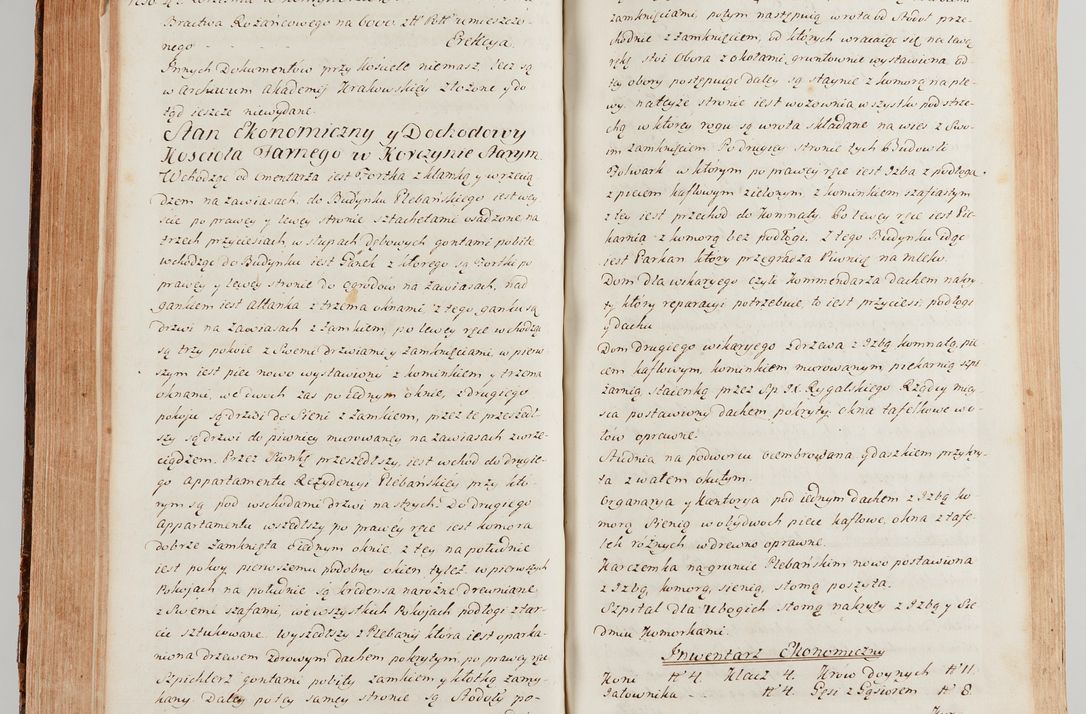 Bractwa Rożańcowego na
nego Erekcya.
Innych Dokumentów przy kościele niemasz, lecz są
w archiwum akademij Krakowskiéy złożone y do
tąd ieszcze niewydane.
Stan Ekonomiczny y Dochodowy
Kościoła Farnego w Korczynie Starym.
Wchodząc od cmentarza iest Fortka z klamką y wrzecią
dzem na zawiasach, do Budynku Plebańskiego iest wey
ście po prawey y lewey stronie sztachetami osadzone na
trzech przyciesiach, w słupach dębowych gontami pobite
wchodząc do Budynku iest Ganek z którego są Fortki po
prawey y lewey stronie do ogrodow na zawiasach, nad
gankiem iest altanka z trzema oknami, z tego ganku są
drzwi na zawiasach z zamkiem, po lewey ręce wchodząc
są trzy pokoie z Swemi drzwiami y zamknięciami, w pierw
szym iest piec nowo wystawiony z kominkiem y trzema
oknami, we dwoch zas po iednym oknie, z drugiego
pokoju są drzwi do Sieni z zamkiem, przez te przeszedł
szy są drzwi do piwnicy murowaney na zawiasach z wrze
ciądzem. Przez Sionkę przeszedłszy, iest wchod do drugie
go appartamentu Rezydencyi Plebańskiey przy któ
rym są pod wschodami drzwi na strych. Do drugiego
Appartamentu wszedłszy po prawey ręce iest komora
dobrze zamknięta o iednym oknie, z tęy na południe
iest pokoy pierwszemu podobny okien tyleż, w pierwszych
Pokojach na południe są kredensa narożne drewniane
z Swemi szafami, we wszystkich Pokojach podłogi z tar
cic sztukowane. Wyszedłszy z Plebanij która iest oparka
niona drzewem zdrowym dachem pokrytym, po prawey ręce
Szpichlerz gontami pobity zamkiem y kłotką zamy
kany. Daley po tey samey stronie są Stodoły po=
zamknięciami, potym następuią wrota od Stodoł prze=
chodnie z zamknięciem, od których wracaiąc się na lewą
rękę stoi Obora z okołami, gruntownie wystawiona, od
tey obory postępuiąc daley są staynie z komorą na ple
wy. na teyże stronie iest wozownia wszystko pod strze
chą w ktorey rogu są wrota składane na wies z Swo=
im zamknięciem. Po drugiey stronie tych Budowli
Folwark w którym po prawey ręce iest Izba z podłogą
z piecem kaflowym zielonym, z kominkiem szafiastym
z tey iest przechod do Komnaty. Po lewey ręce iest Pie
karnia z komorą bez podłogi. Z tego Budynku idąc
iest Parkan ktory przegradza Piwnicę na mleko.
Dom dla wikaryego czyli Kommendarza dachem nakry
ty który reparacyi potrzebuie, to iest przyciesi podłogi
y dachu.
Dom drugiego wikaryiego z drzewa z Izbą komnatą pie
cem kaflowym, kominkiem murowanym piekarnią spi
żarnią, staienką przez Sp. IX. Rygalskiego Rządcę miey
sca postawiony dachem pokryty, okna tafelkowe w o=
łow oprawne.
Studnia na podworcu ocembrowana y daszkiem przykry
ta z wałem okutym.
Organarya y Kantorya pod iednym dachem z Izbą ko
morą Sienią w obydwoch piece kaflowe, okna z tafe
lek różnych w drewno oprawne.
Karczemka na gruncie Plebańskim nowo postawiona
z Izbą, komorą, sienią, słomą poszyta.
Szpital dla Ubogich słomą nakryty z Izbą y Sie
dmiu Komorkami.
Inwentarz Ekonomiczny
Koni N 4. Klacz 4. Krów doynych N 11.
Jałownika N 4. Gęsi z Gąsiorem N 8.